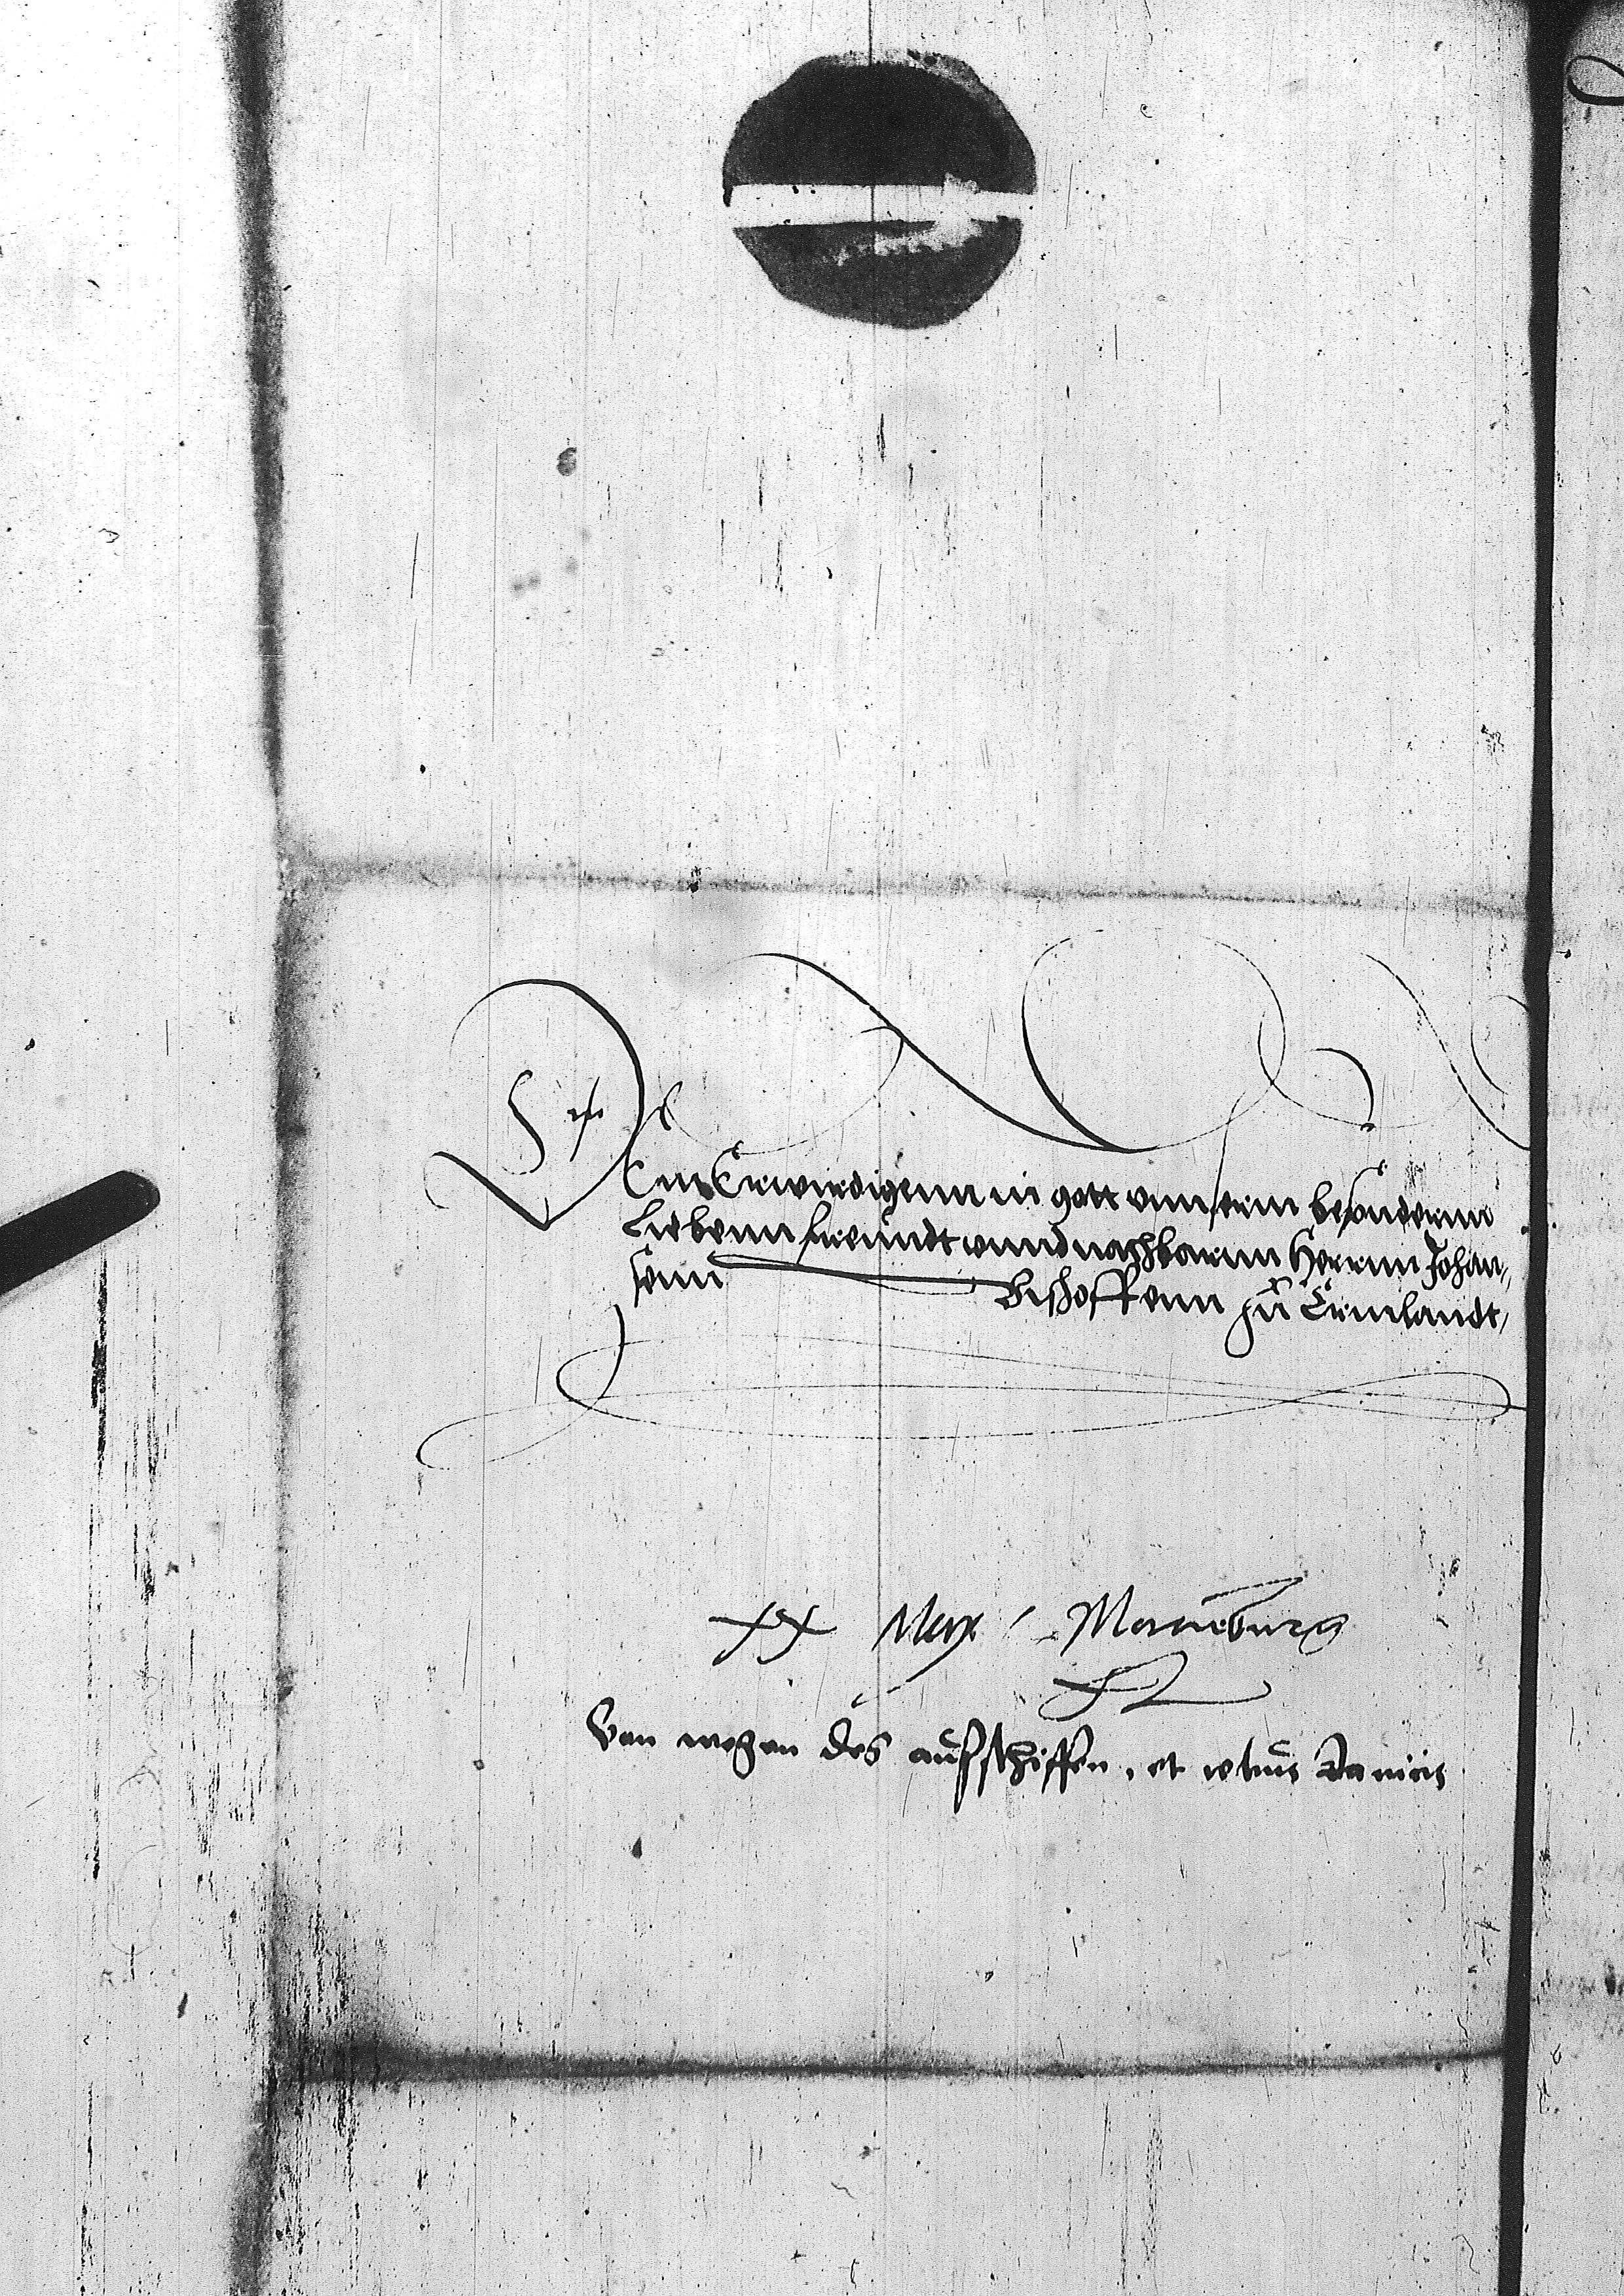 Dem Erwirdigenn in gott unnserm besondernn
Liebenn freundt unnd nachbarnn Herrnn Johan„
senn Bischoffenn zu Ermlandt
XX May Marieburg
Von wegen des ausschiffen, et